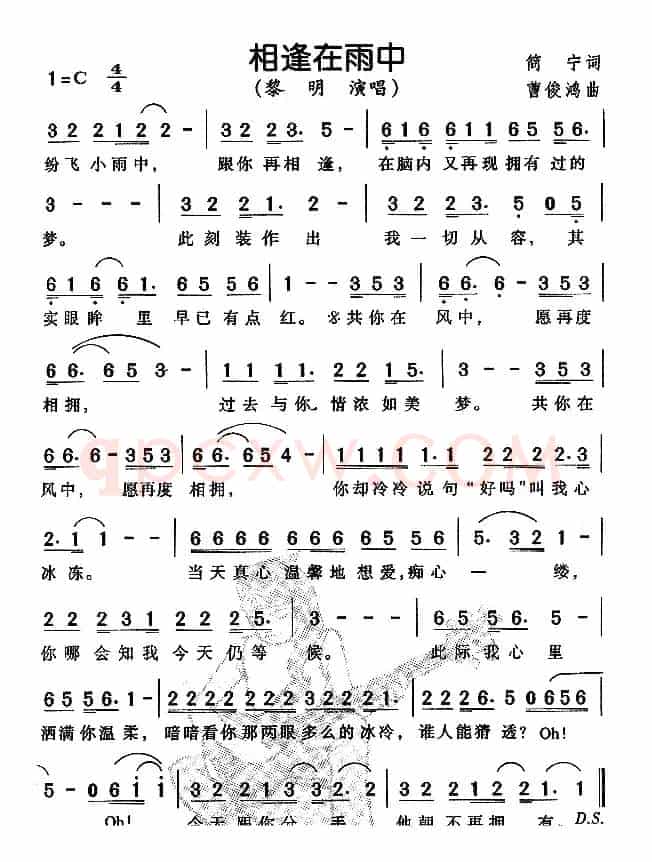 相逢在雨中
1=C 4/4
(黎 明 演唱)
简 宁词
曹俊鸿曲
3 2 2 1 2 2 - | 3 2 2 3. 5 - | 6 1 6 6 1 1 6 5 5 6.
纷飞小雨中, 跟你再相逢, 在脑内又再现拥有过的
3 - - - | 3 2 2 1. 2 - | 3 2 2 3. 5 0 5
梦。 此刻装作出 我一切从容,其
6 1 6 6 1. 6 5 5 6 | 1 - - 3 5 3 | 6 6. 6 - 3 5 3
实眼眸里早已有点红。※共你在风中,愿再度
6 6. 6 5 3 - | 1 1 1 1. 2 2 1 5. | 3 - - 3 5 3
相拥, 过去与你情浓如美梦。共你在
6 6. 6 - 3 5 3 | 6 6. 6 5 4 - | 1 1 1 1 1. 1 2 2 2 2. 3
风中,愿再度相拥, 你却冷冷说句“好吗”叫我心
2. 1 1 - - | 6 6 6 6 6 6 6 6 7 6 6 | 5. 3 2 1 -
冰冻。 当天真心温馨地想爱,痴心一缕,
2 2 2 2 3 1 2 2 2 5. | 3 - - - | 6 5 5 6. 5 -
你哪会知我今天仍等候。 此际我心里
6 5 5 6. 1 - | 2 2 2 2 2 2 2 3 2 1 2 | 2 2 5. 5 0 6 5 6
洒满你温柔,暗暗看你那两眼多么的冰冷,谁人能猜透?Oh!
5 - 0 6 1 1 | 3 2 2 1 3 2 2 1 | 3 2 2 1 3 5
Oh! 今天跟你分手, 他朝不再拥有。
D.S.
qpcxw.COM